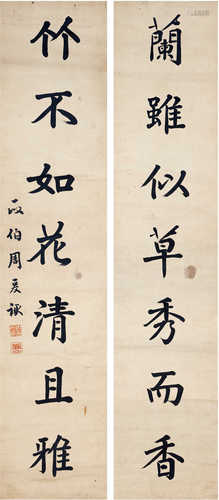 蘭雖似草秀而香
竹不如花清且雅
伯周爰諏